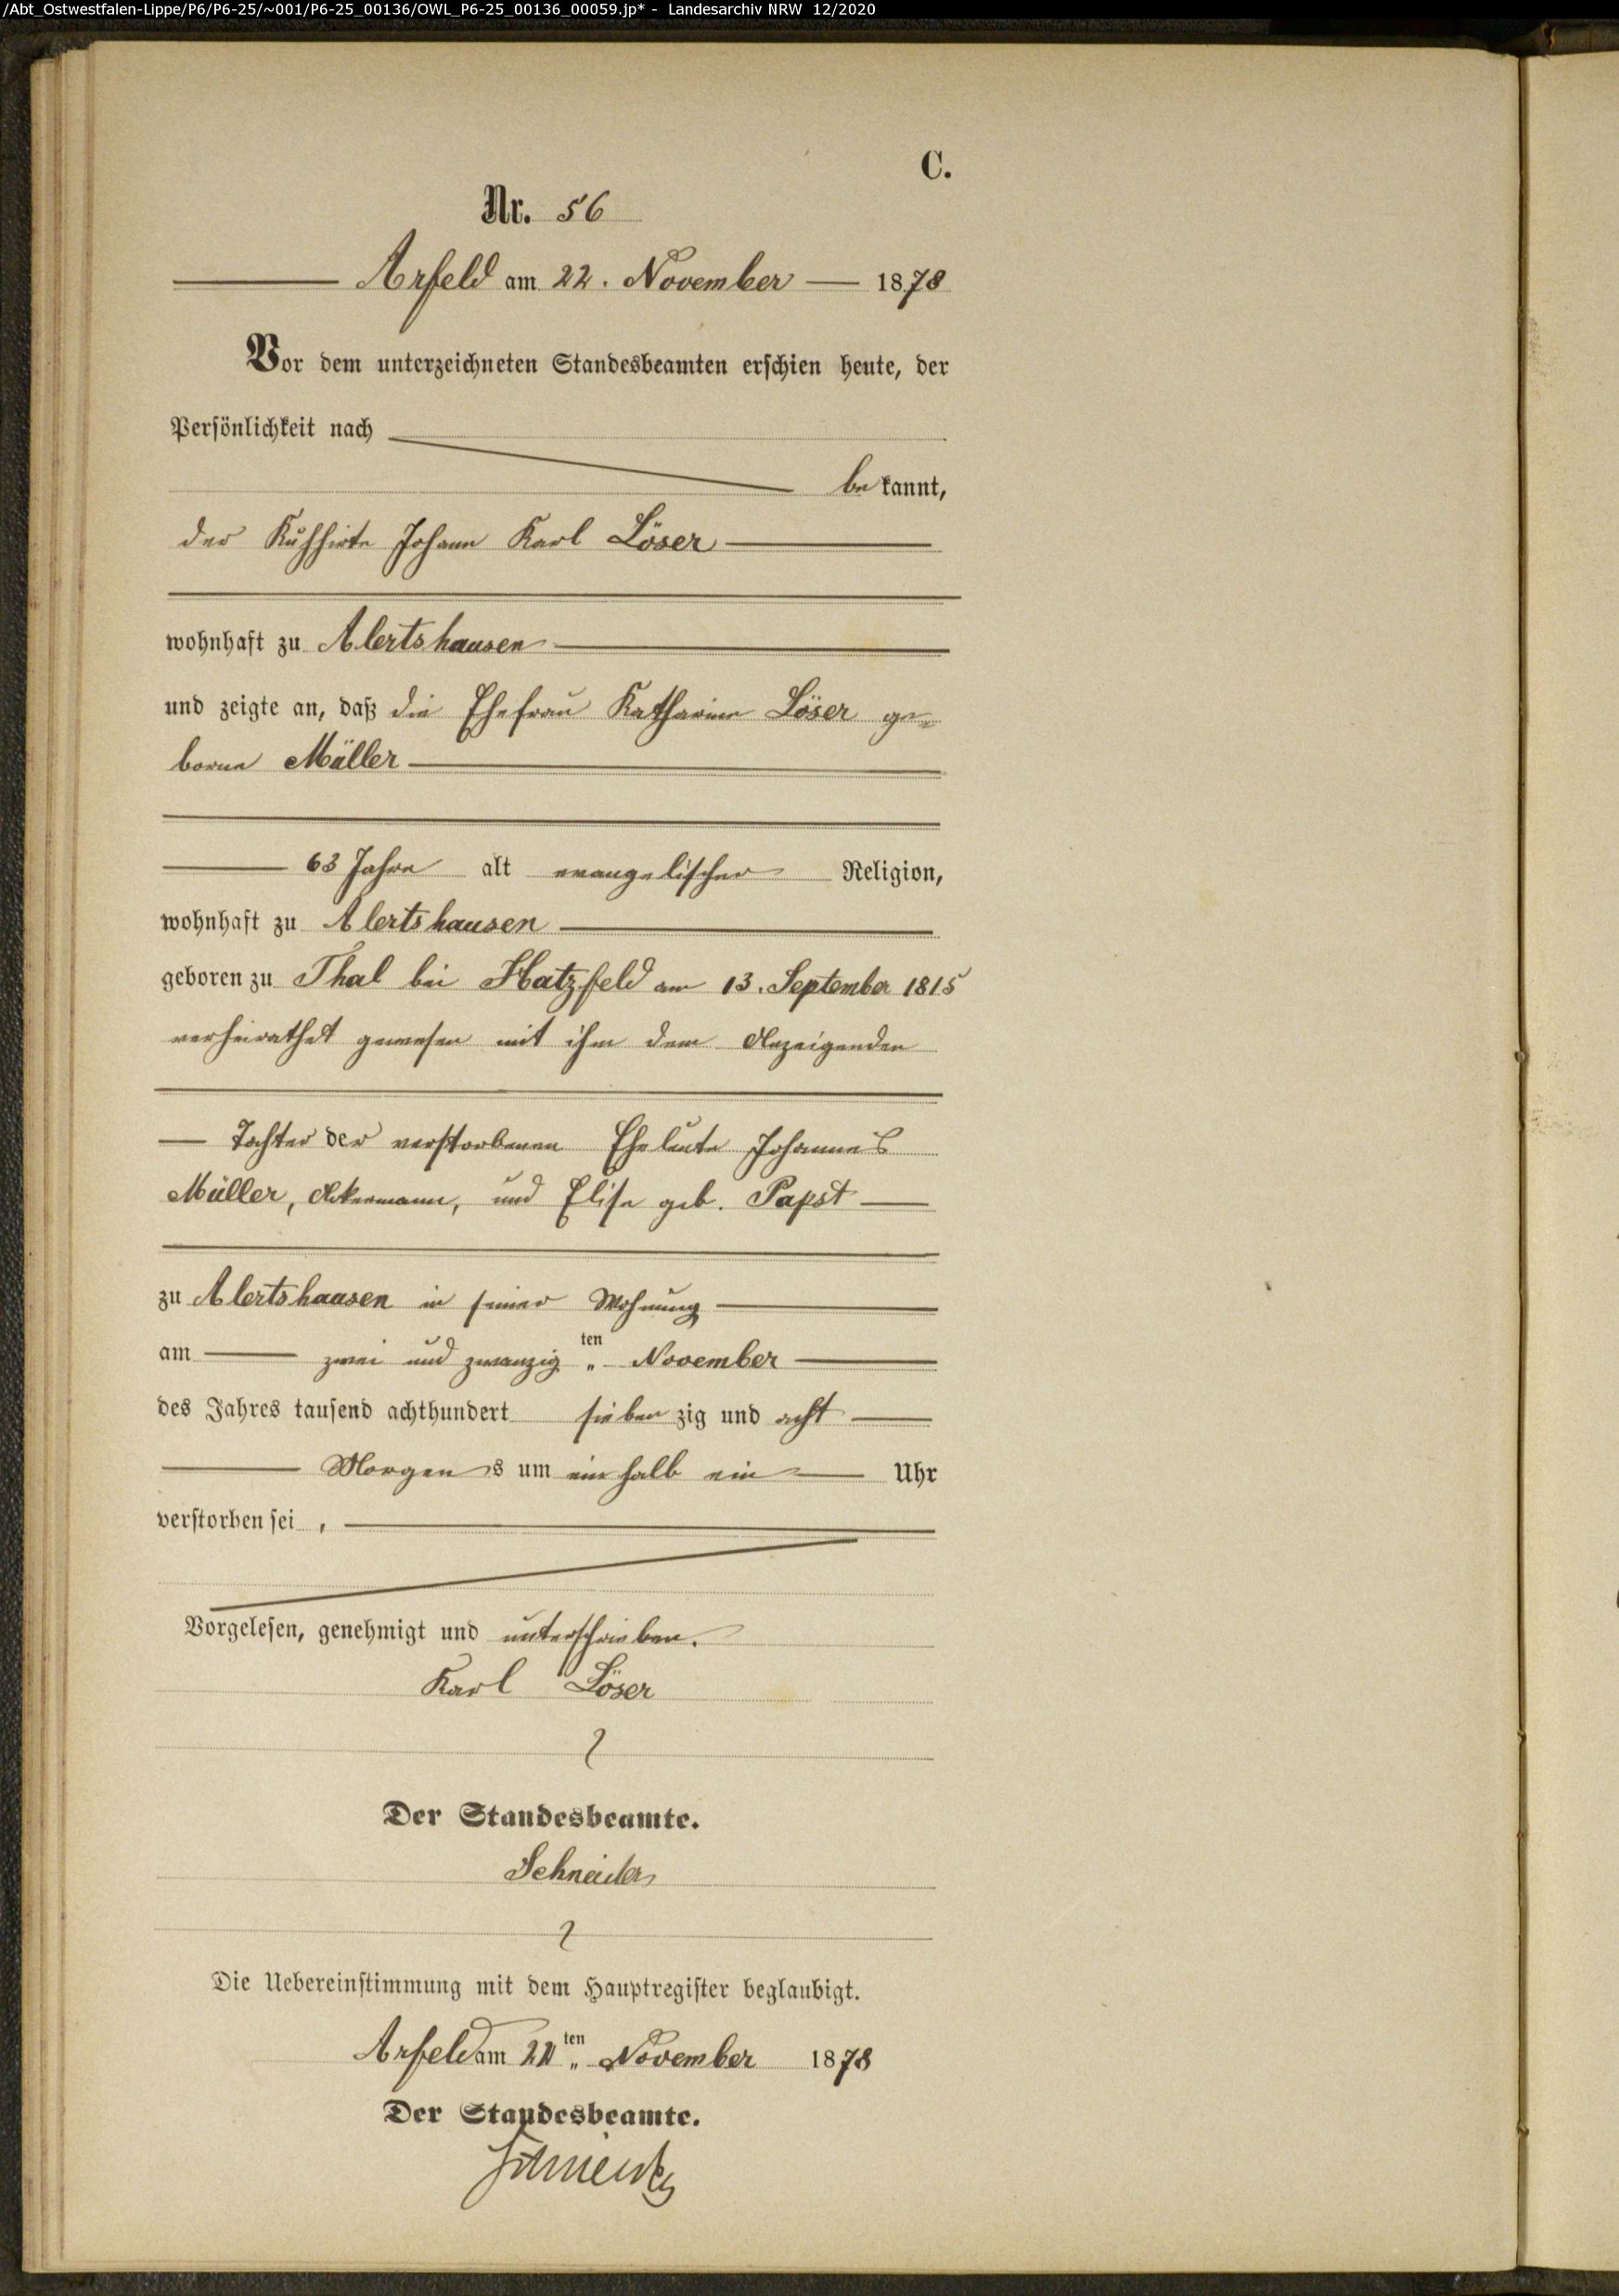 /Abt_Ostwestfalen-Lippe/P6/P6-25/~001/P6-25_00136/OWL_P6-25_00136_00059.jp* - Landesarchiv NRW 12/2020
C.
Nr. 56
Arfeld am 22. November 1878
Vor dem unterzeichneten Standesbeamten erschien heute, der
Persönlichkeit nach
bekannt,
der Kuhhirte Johann Karl Löser
wohnhaft zu Alertshausen
und zeigte an, daß die Ehefrau Katharine Löser ge-
borne Müller
63 Jahre alt evangelischer Religion,
wohnhaft zu Alertshausen
geboren zu Thal bei Hatzfeld am 13. September 1815
verheirathet gewesen mit ihm dem Anzeigenden
Tochter der verstorbenen Eheleute Johannes
Müller, Ackermann, und Elise geb. Papst
zu Alertshausen in seiner Wohnung
am zwei und zwanzig ten November
des Jahres tausend achthundert siebenzig und acht
Morgens um ein halb ein Uhr
verstorben sei,
Vorgelesen, genehmigt und unterschrieben.
Karl Löser
Der Standesbeamte.
Schneider
Die Uebereinstimmung mit dem Hauptregister beglaubigt.
Arfeld am 22ten November 1878
Der Standesbeamte.
Schneider